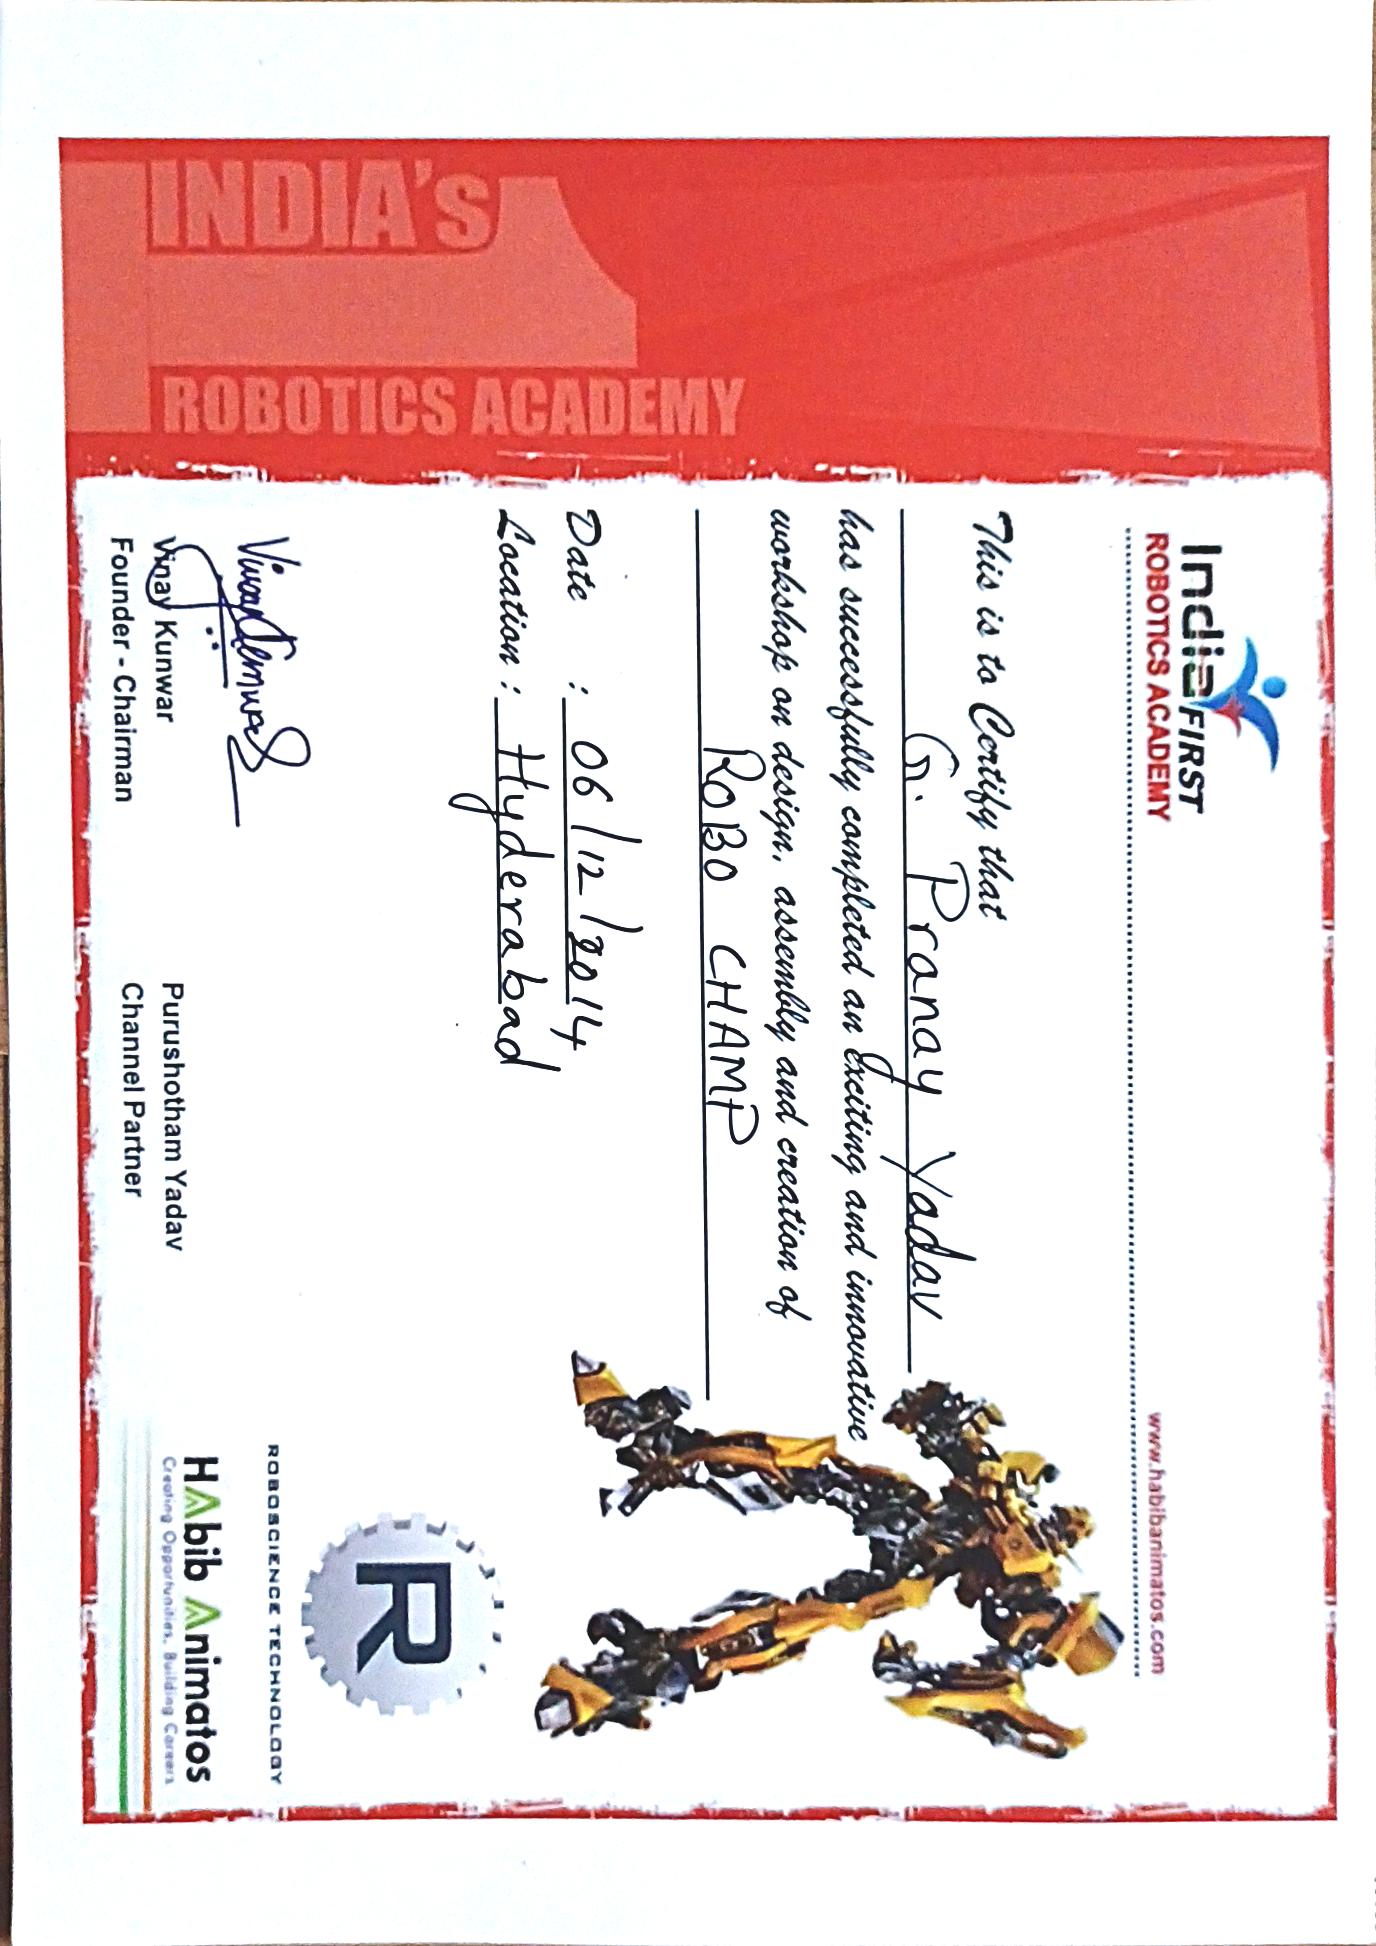 INDIA's
1
ROBOTICS ACADEMY
IndiaFIRST
ROBOTICS ACADEMY
www.habibanimatos.com
This is to Certify that
G. Pranay Yadav
has successfully completed an exciting and innovative
workshop on design, assembly and creation of
ROBO CHAMP
Date : 06/12/2014
Location : Hyderabad
R
ROBOSCIENCE TECHNOLOGY
Vinay Kunwar
Founder - Chairman
Purushotham Yadav
Channel Partner
HAbib Animatos
Creating Opportunities, Building Careers